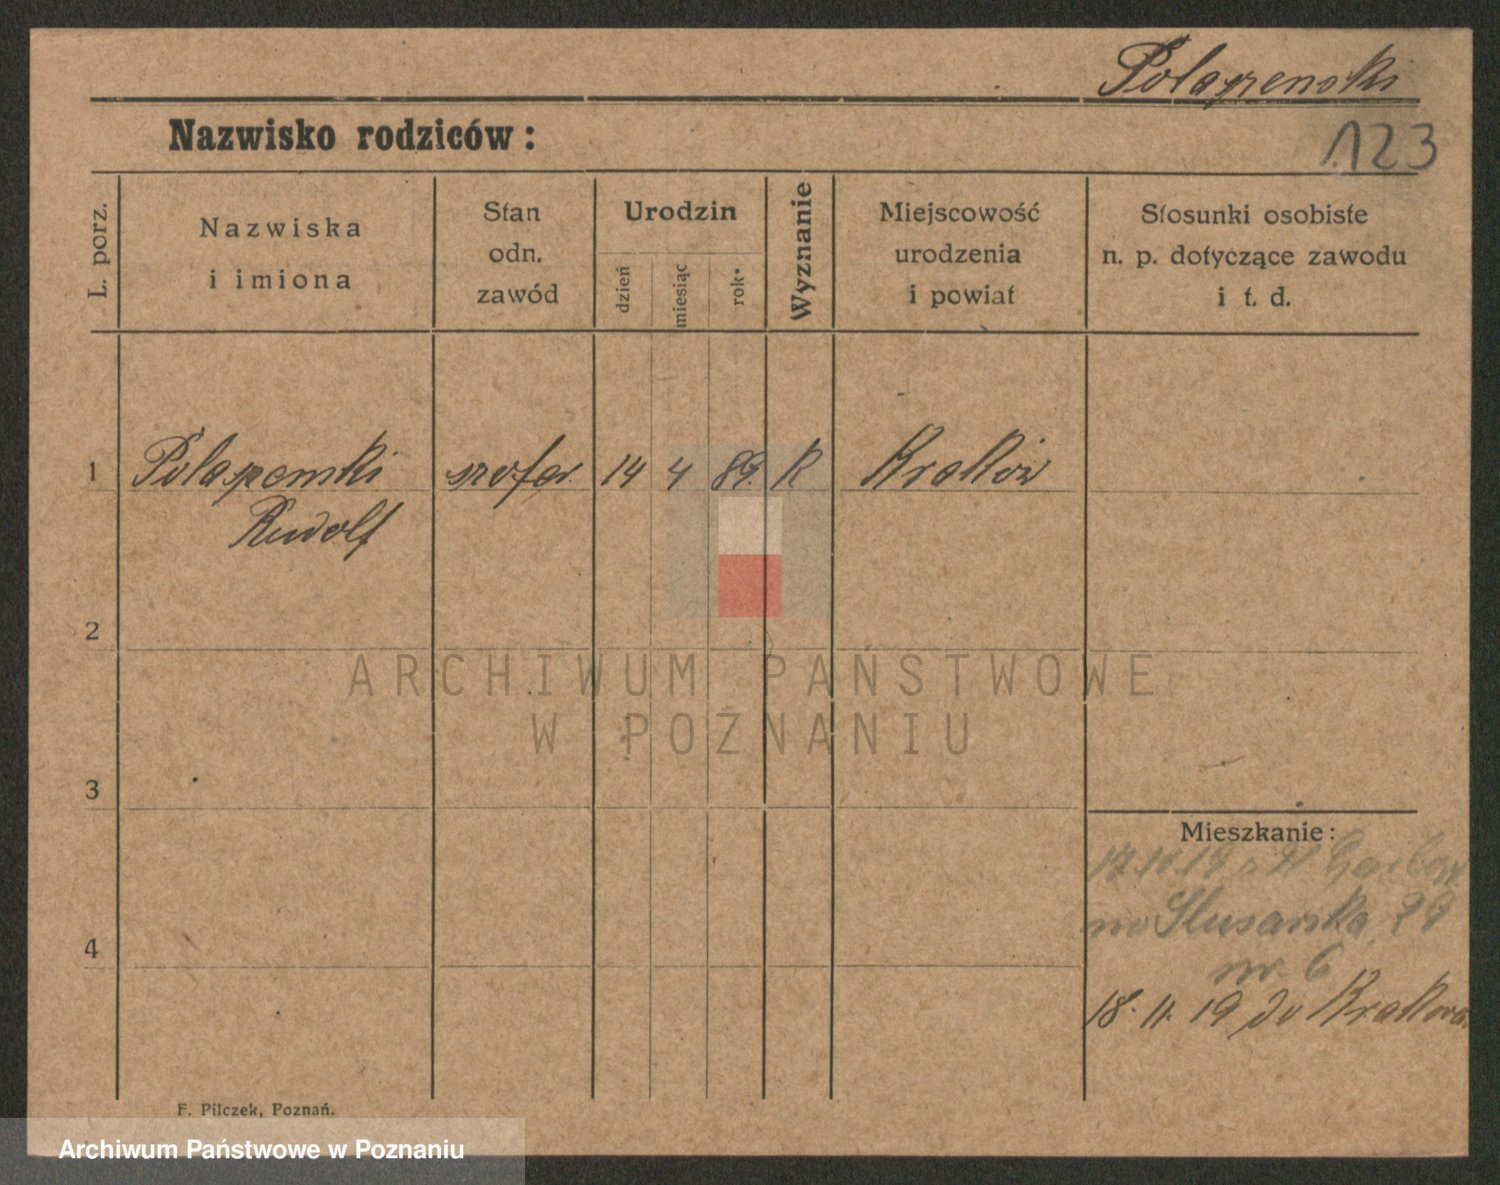 Polaszenski
Nazwisko rodziców:
123
L. porz.
Nazwiska
i imiona
Stan
odn.
zawód
Urodzin
dzień
miesiąc
rok
Wyznanie
Miejscowość
urodzenia
i powiat
Stosunki osobiste
n. p. dotyczące zawodu
i t. d.
1
szofer
14
4
89.
K
Kraków
Rudolf
2
ARCHIWUM PAŃSTWOWE
W POZNANIU
3
Mieszkanie:
Ślusarska
4
nr. 6
18. 11. 19 do Krakowa
F. Pilczek, Poznań.
Archiwum Państwowe w Poznaniu